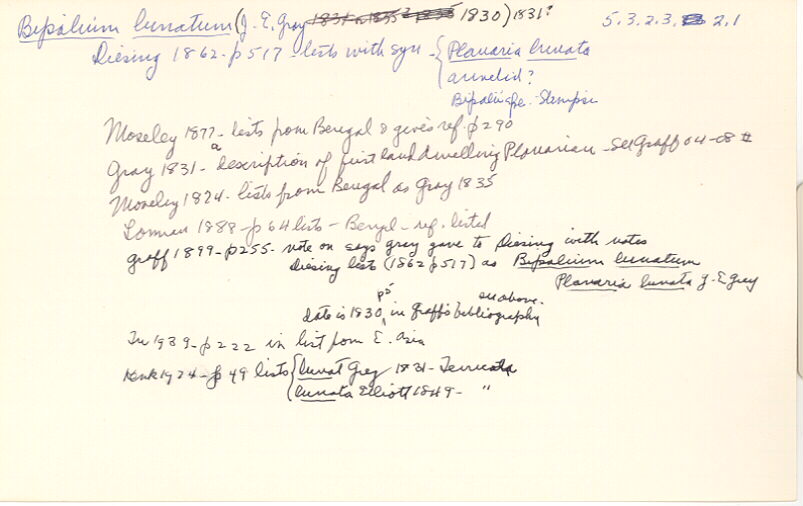 Bipalium lunatum (J. E. Gray 1830) 1831? 5.3.2.3. 2.1
Diesing 1862-p517-lists with syn - { Planaria lunata
annelid?
Moseley 1877- lists from Bengal & gives ref. p290
Gray 1831- a description of first land dwelling Planarian - See Graff 04-08 #
Moseley 1874- lists from Bengal as Gray 1835
Loman 1888-p 64 lists - Bengl- ref. listed
Graff 1899-p255- note on says Gray gave to Diesing with notes
Diesing lists (1862 p517) as Bipalium lunatum
Planaria lunata J. E Gray
date is 1830, p5 in Graff's bibliography see above.
1939-p222 in list from E. Asia
Kenk 1974-p 49 lists { lunat Gray 1831- Terricola
lunata Elliott 1849- "